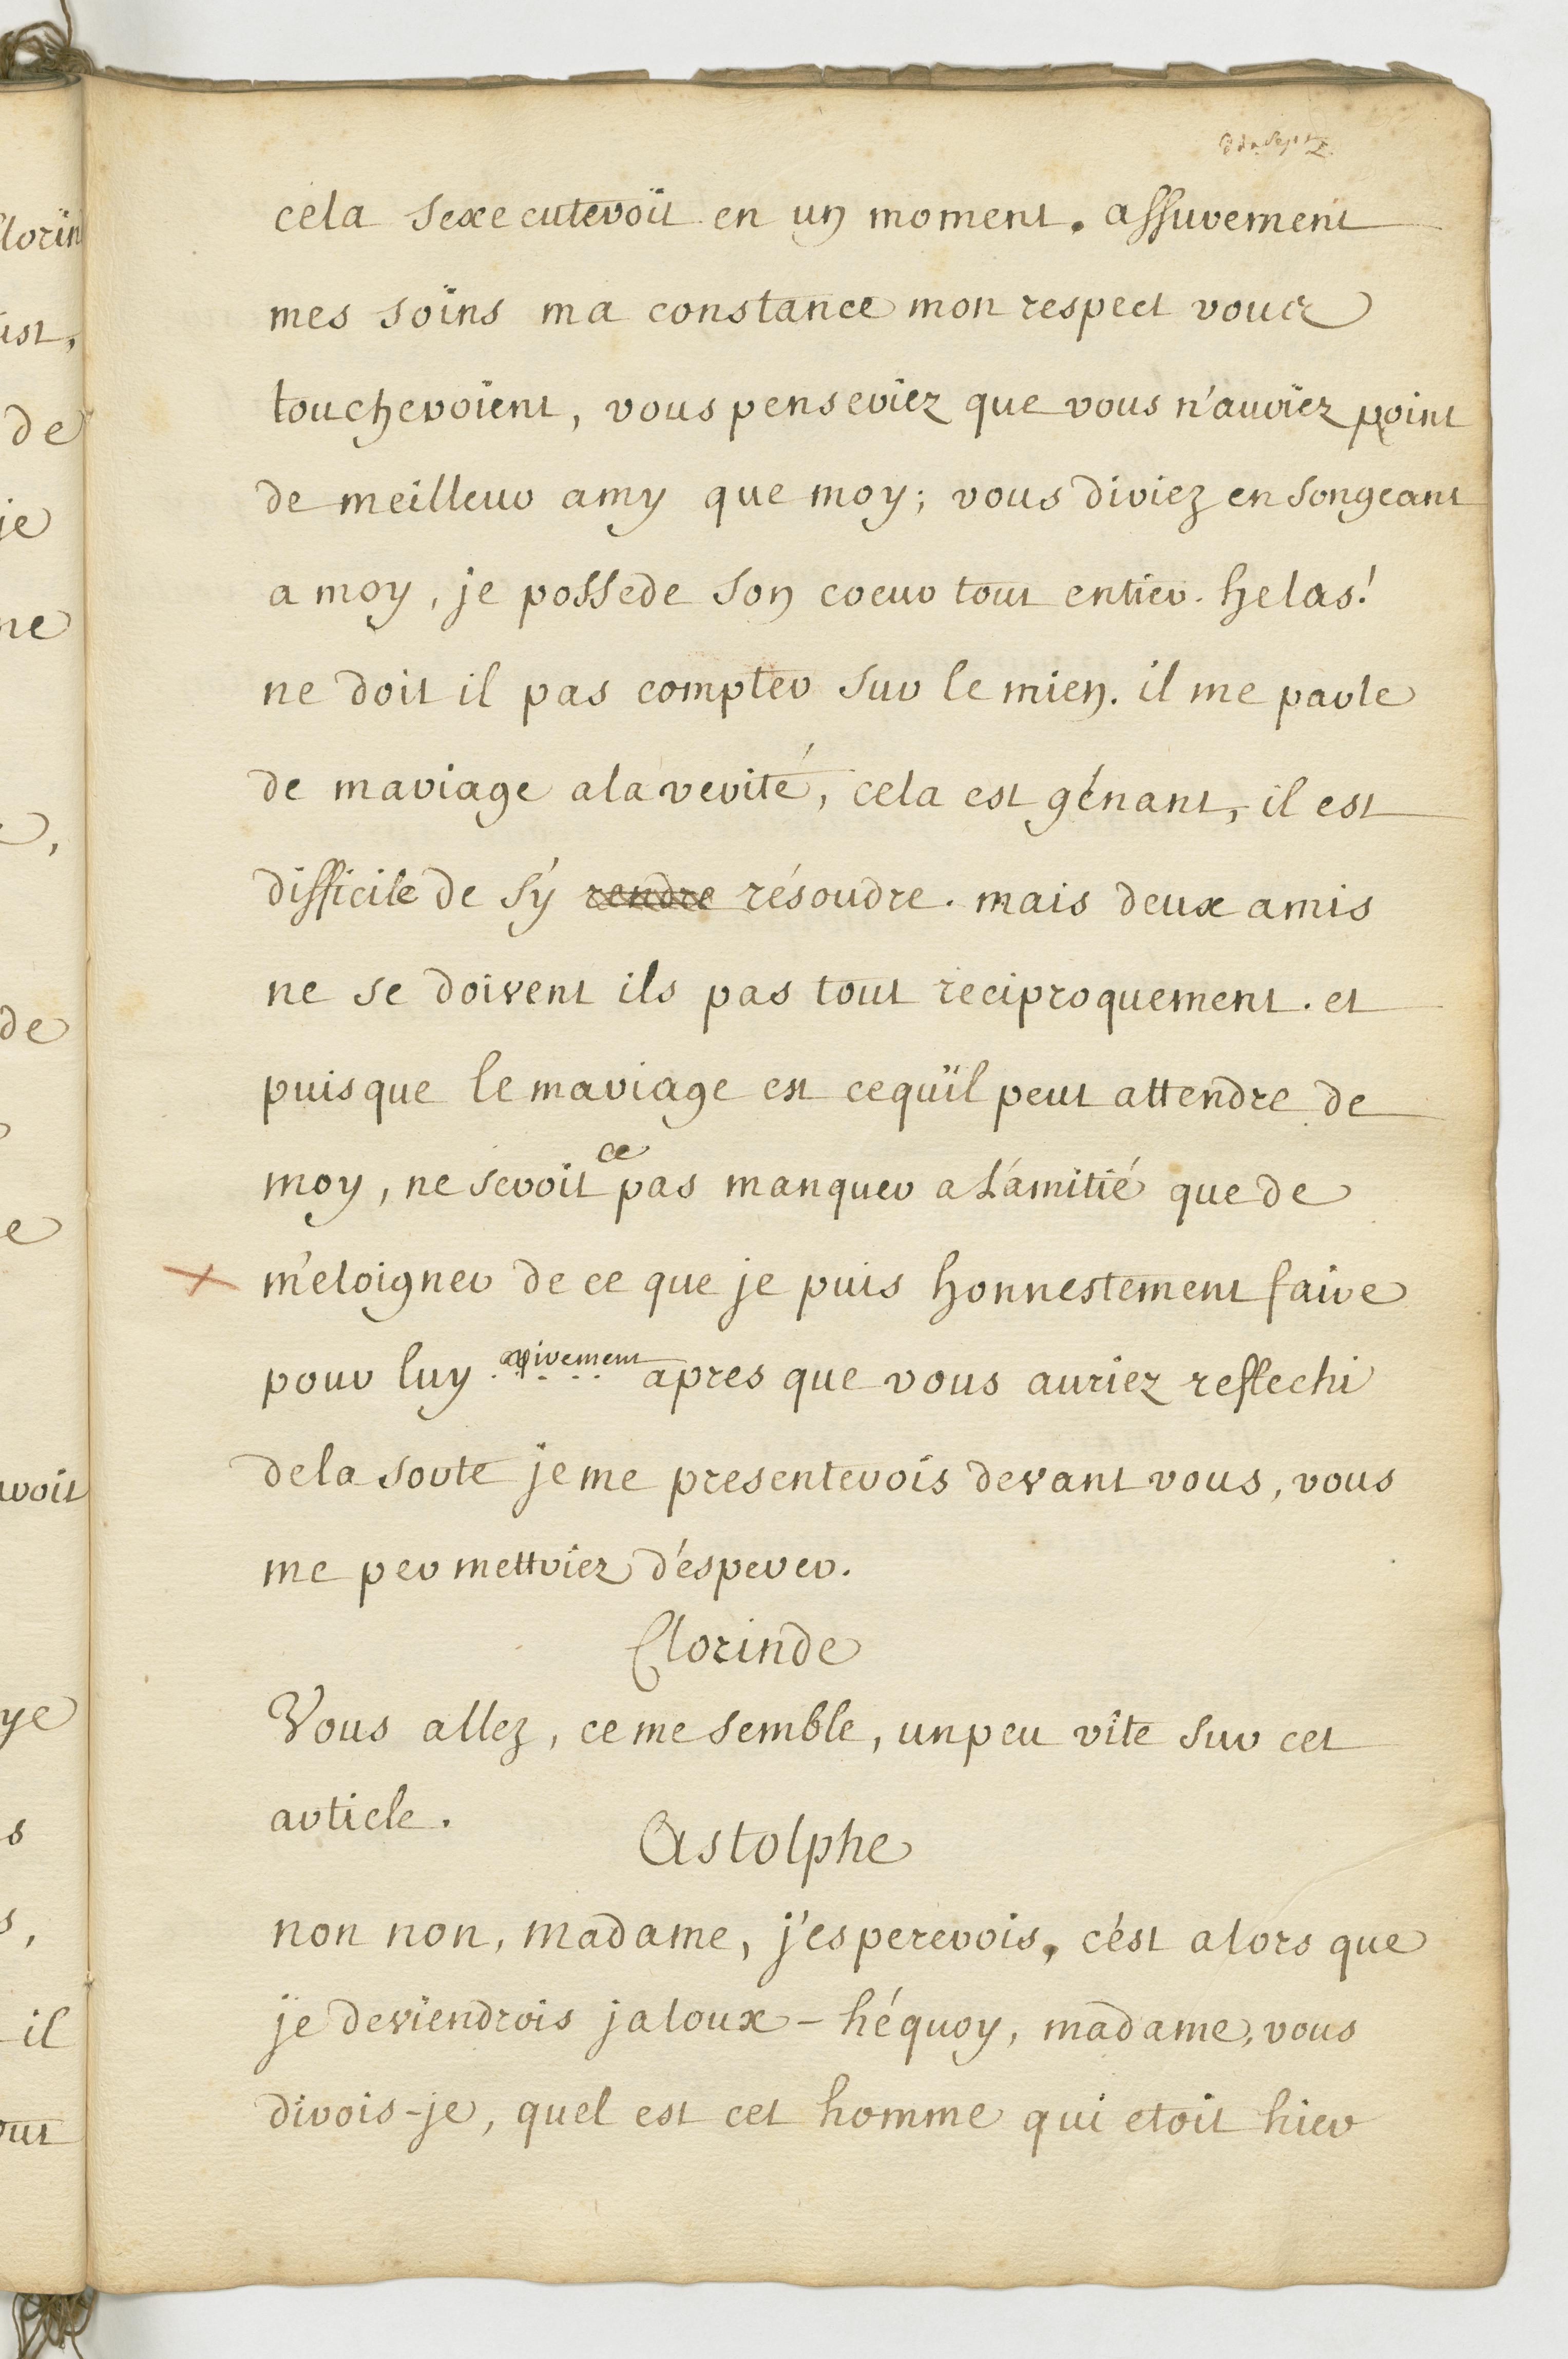 cela sexecuteroit en un moment. assurement
mes soins ma constance mon respect vous
toucheroient, vous penseriez que vous n'auriez point
de meilleur amy que moy; vous diriez en songeant
a moy, je possede son coeur tout entier. helas!
ne doit il pas compter sur le mien. il me parle
de mariage a la verité, cela est génant, il est
difficile de s'y rendre résoudre. mais deux amis
ne se doivent ils pas tout reciproquement. et
puisque le mariage est cequil peut attendre de
moy, ne seroit ce pas manquer a l'amitié que de
m'eloigner de ce que je puis honnestement faire
pour luy apres que vous auriez reflechi
dela sorte je me presenterois devant vous, vous
me permettriez d'esperer.
Clorinde
Vous allez, ce me semble, un peu vîte sur cet
article.
Astolphe
non non, madame, j'espererois, c'ést alors que
je deviendrois jaloux - hé quoy, madame, vous
dirois-je, quel est cet homme qui etoit hier
lorin
ist,
de
je
ne
de
e
ye
s
s,
il